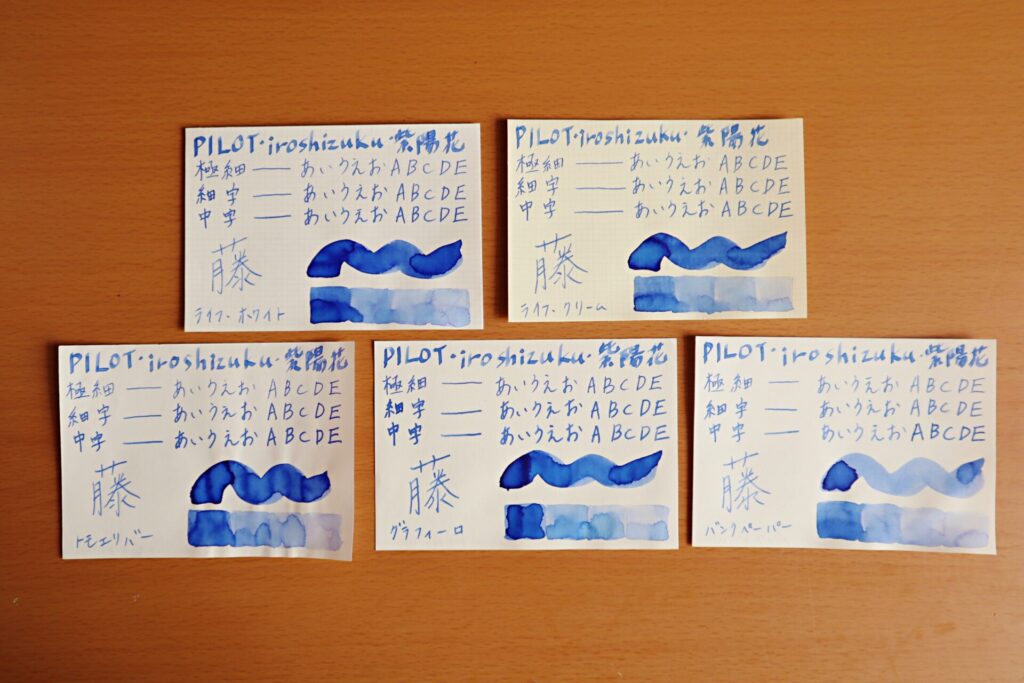 PILOT・iroshizuku・紫陽花
極細 ― あいうえお ABCDE
細字 ― あいうえお ABCDE
中字 ― あいうえお ABCDE
藤
ライフ・ホワイト
PILOT・iroshizuku・紫陽花
極細 ― あいうえお ABCDE
細字 ― あいうえお ABCDE
中字 ― あいうえお ABCDE
藤
ライフ・クリーム
PILOT・iroshizuku・紫陽花
極細 ― あいうえお ABCDE
細字 ― あいうえお ABCDE
中字 ― あいうえお ABCDE
藤
トモエリバー
PILOT・iroshizuku・紫陽花
極細 ― あいうえお ABCDE
細字 ― あいうえお ABCDE
中字 ― あいうえお ABCDE
藤
グラフィーロ
PILOT・iroshizuku・紫陽花
極細 ― あいうえお ABCDE
細字 ― あいうえお ABCDE
中字 ― あいうえお ABCDE
藤
バンクペーパー